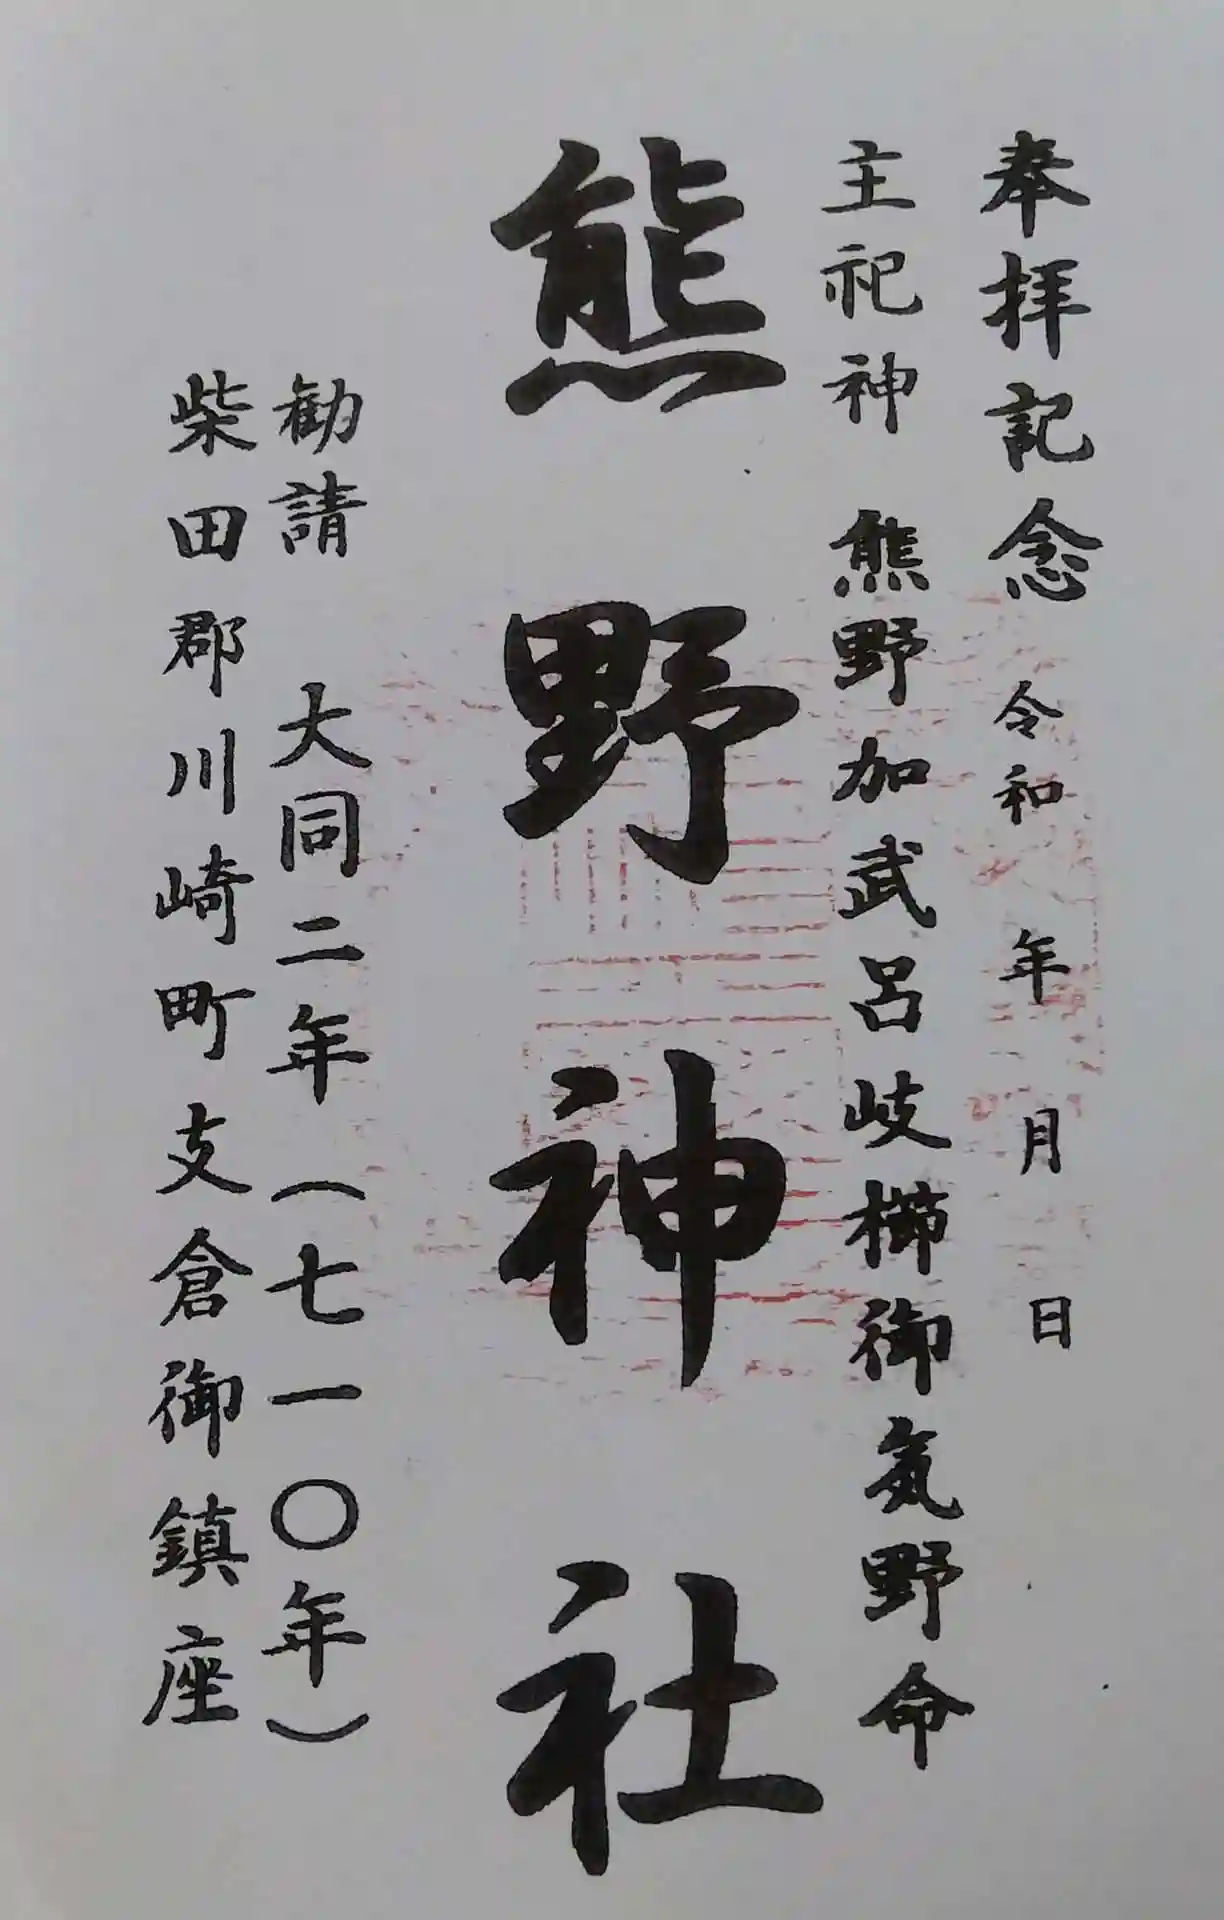 奉拝記念 令和 年 月 日
主祀神 熊野加武呂岐櫛御気野命
熊野神社
勧請 大同二年(七一〇年)
柴田郡川崎町支倉御鎮座